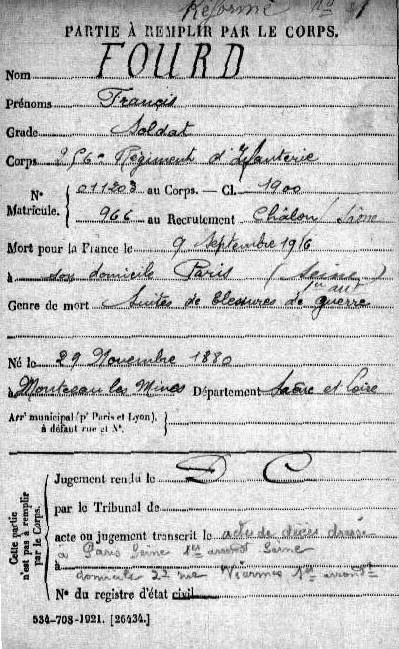 Réformé No 1
PARTIE À REMPLIR PAR LE CORPS.
Nom FOURD
Prénoms Francis
Grade Soldat
Corps 256e Régiment d'Infanterie
No Matricule. { 011203 au Corps. — Cl. 1900
966 au Recrutement Châlon/Saône
Mort pour la France le 9 Septembre 1916
à son domicile Paris (Seine)
1er arrt
Genre de mort Suites de blessures de guerre
Né le 29 Novembre 1880
à Montceau les Mines Département Saône et Loire
Arrt municipal (pr Paris et Lyon), }
à défaut rue et No.
Cette partie n'est pas à remplir par le Corps.
Jugement rendu le D C
par le Tribunal de
acte ou jugement transcrit le acte de décès dressé
à Paris Seine 1er arrondt Seine
domicile 22 rue Viarmes 1er arrondt
No du registre d'état civil
534-708-1921. [26434.]